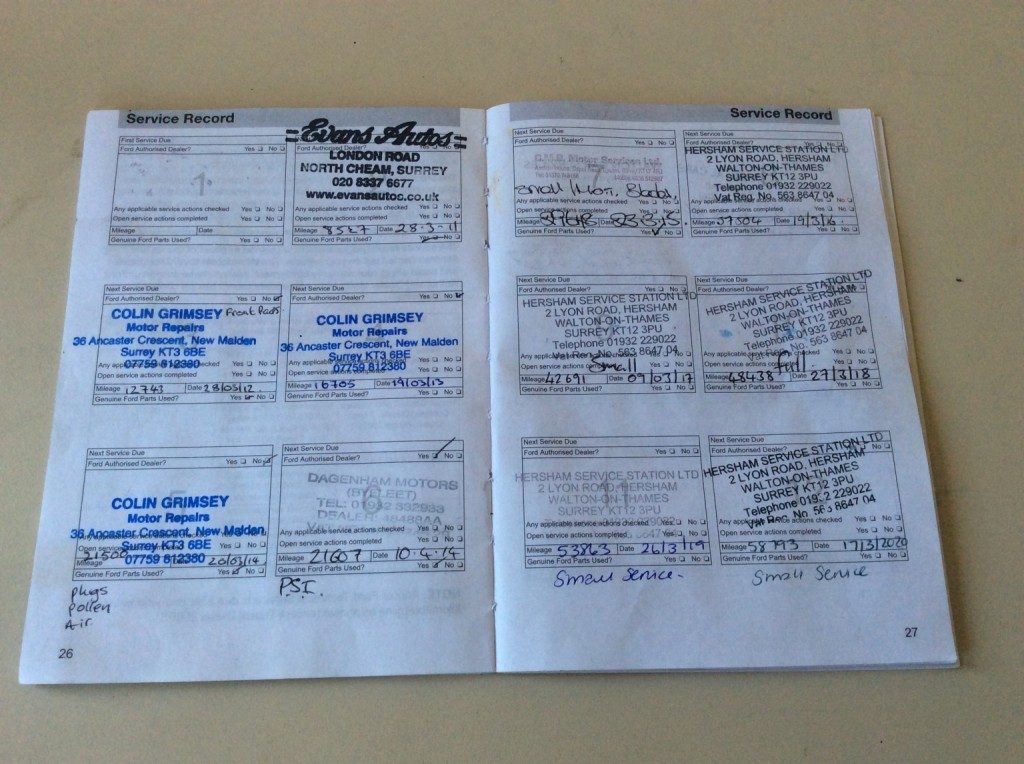 Service Record
First Service Due
Ford Authorised Dealer? Yes No
1
Any applicable service actions checked Yes No
Open service actions completed Yes No
Mileage Date
Genuine Ford Parts Used? Yes No
Evans Autos
Ford Authorised Dealer?
LONDON ROAD
NORTH CHEAM, SURREY
020 8337 6677
www.evansautoc.co.uk
Any applicable service actions checked Yes No
Open service actions completed Yes No
Mileage 8527 Date 28-3-11
Genuine Ford Parts Used? Yes No
Next Service Due
Ford Authorised Dealer? Yes No
COLIN GRIMSEY Front Pads.
Motor Repairs
36 Ancaster Crescent, New Malden
Surrey KT3 6BE
07759 812380
Open service actions completed Yes No
Mileage 12743 Date 28/03/12.
Genuine Ford Parts Used? Yes No
Next Service Due
Ford Authorised Dealer? Yes No
COLIN GRIMSEY
Motor Repairs
36 Ancaster Crescent, New Malden
Surrey KT3 6BE
07759 812380
Open service actions completed Yes No
Mileage 16705 Date 19/03/13
Genuine Ford Parts Used? Yes No
Next Service Due
Ford Authorised Dealer? Yes No
COLIN GRIMSEY
Motor Repairs
36 Ancaster Crescent, New Malden
Surrey KT3 6BE
07759 812380
21500
Mileage 20/03/14
Genuine Ford Parts Used? Yes No
Plugs
Pollen
Air.
Next Service Due
Ford Authorised Dealer? Yes No
DAGENHAM MOTORS
(BYFLEET)
Any applicable service actions checked Yes No
Open service actions completed Yes No
Mileage 21607 Date 10.4.14
Genuine Ford Parts Used? Yes No
P.S.I.
26
Service Record
Next Service Due
Ford Authorised Dealer? Yes No
Motor Services Ltd.
Small
Open service actions completed Yes No
Mileage Date
Genuine Ford Parts Used? Yes No
Next Service Due
Ford Authorised Dealer? Yes No
HERSHAM SERVICE STATION LTD
2 LYON ROAD, HERSHAM
WALTON-ON-THAMES
SURREY KT12 3PU
Telephone 01932 229022
Vat Reg. No. 563 8647 04
Open service actions completed Yes No
Mileage 37504 Date 17/3/16
Genuine Ford Parts Used? Yes No
Next Service Due
Ford Authorised Dealer? Yes No
HERSHAM SERVICE STATION LTD
2 LYON ROAD, HERSHAM
WALTON-ON-THAMES
SURREY KT12 3PU
Telephone 01932 229022
Vat Reg. No. 563 8647 04
Small
Open service actions completed Yes No
Mileage 42691 Date 09/03/17
Genuine Ford Parts Used? Yes No
Next Service Due
Ford Authorised Dealer?
HERSHAM SERVICE STATION LTD
2 LYON ROAD, HERSHAM
WALTON-ON-THAMES
SURREY KT12 3PU
Telephone 01932 229022
Vat Reg. No. 563 8647 04
Full
Open service actions completed Yes No
Mileage 48438 Date 27/3/18
Genuine Ford Parts Used? Yes No
Next Service Due
Ford Authorised Dealer? Yes No
HERSHAM SERVICE STATION LTD
2 LYON ROAD, HERSHAM
WALTON-ON-THAMES
SURREY KT12 3PU
Telephone 01932 229022
Any applicable service actions checked Yes No
Open service actions completed Yes No
Mileage 53863 Date 26/3/19
Genuine Ford Parts Used? Yes No
Small Service.
Next Service Due
Ford Authorised Dealer? Yes No
HERSHAM SERVICE STATION LTD
2 LYON ROAD, HERSHAM
WALTON-ON-THAMES
SURREY KT12 3PU
Telephone 01932 229022
Vat Reg. No. 563 8647 04
Open service actions completed Yes No
Mileage 58793 Date 17/3/2020
Genuine Ford Parts Used? Yes No
Small Service
27